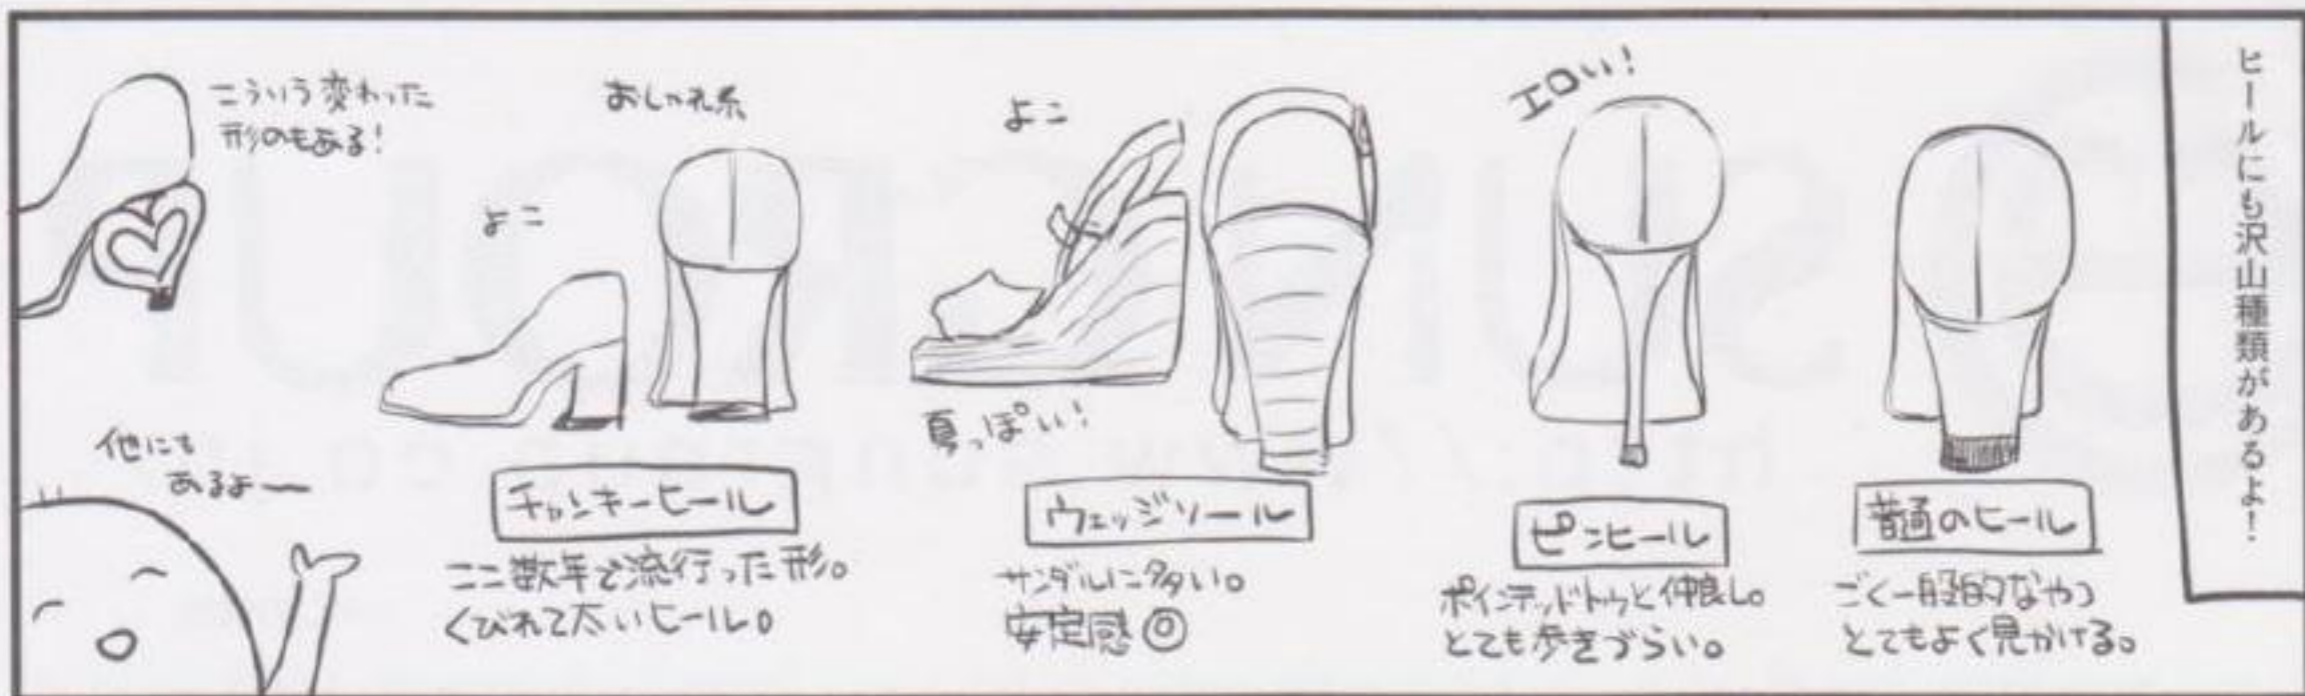 ヒールにも沢山種類があるよ!
普通のヒール
ごく一般的なやつ
とてもよく見かける。
エロい!
ピンヒール
ポインテッドトゥと仲良し。
とても歩きづらい。
よこ
夏っぽい!
ウェッジソール
サンダルに多い。
安定感◎
おしゃれ系
よこ
チャンキーヒール
ここ数年で流行った形。
くびれて太いヒール。
こういう変わった
形のもある!
他にも
あるよ〜